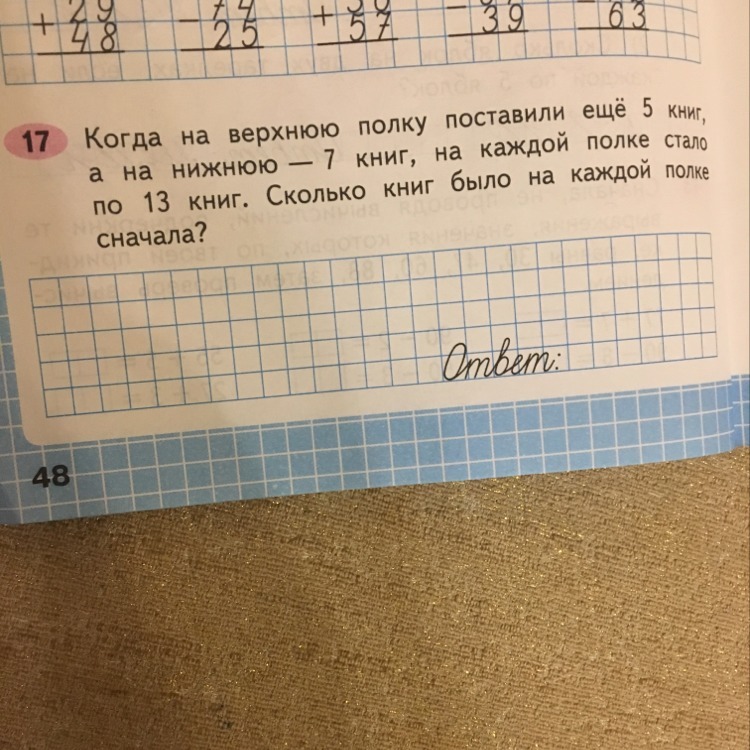 + 29 − 74 + 57 39 63
48 25
17 Когда на верхнюю полку поставили ещё 5 книг,
а на нижнюю — 7 книг, на каждой полке стало
по 13 книг. Сколько книг было на каждой полке
сначала?
Ответ:
48